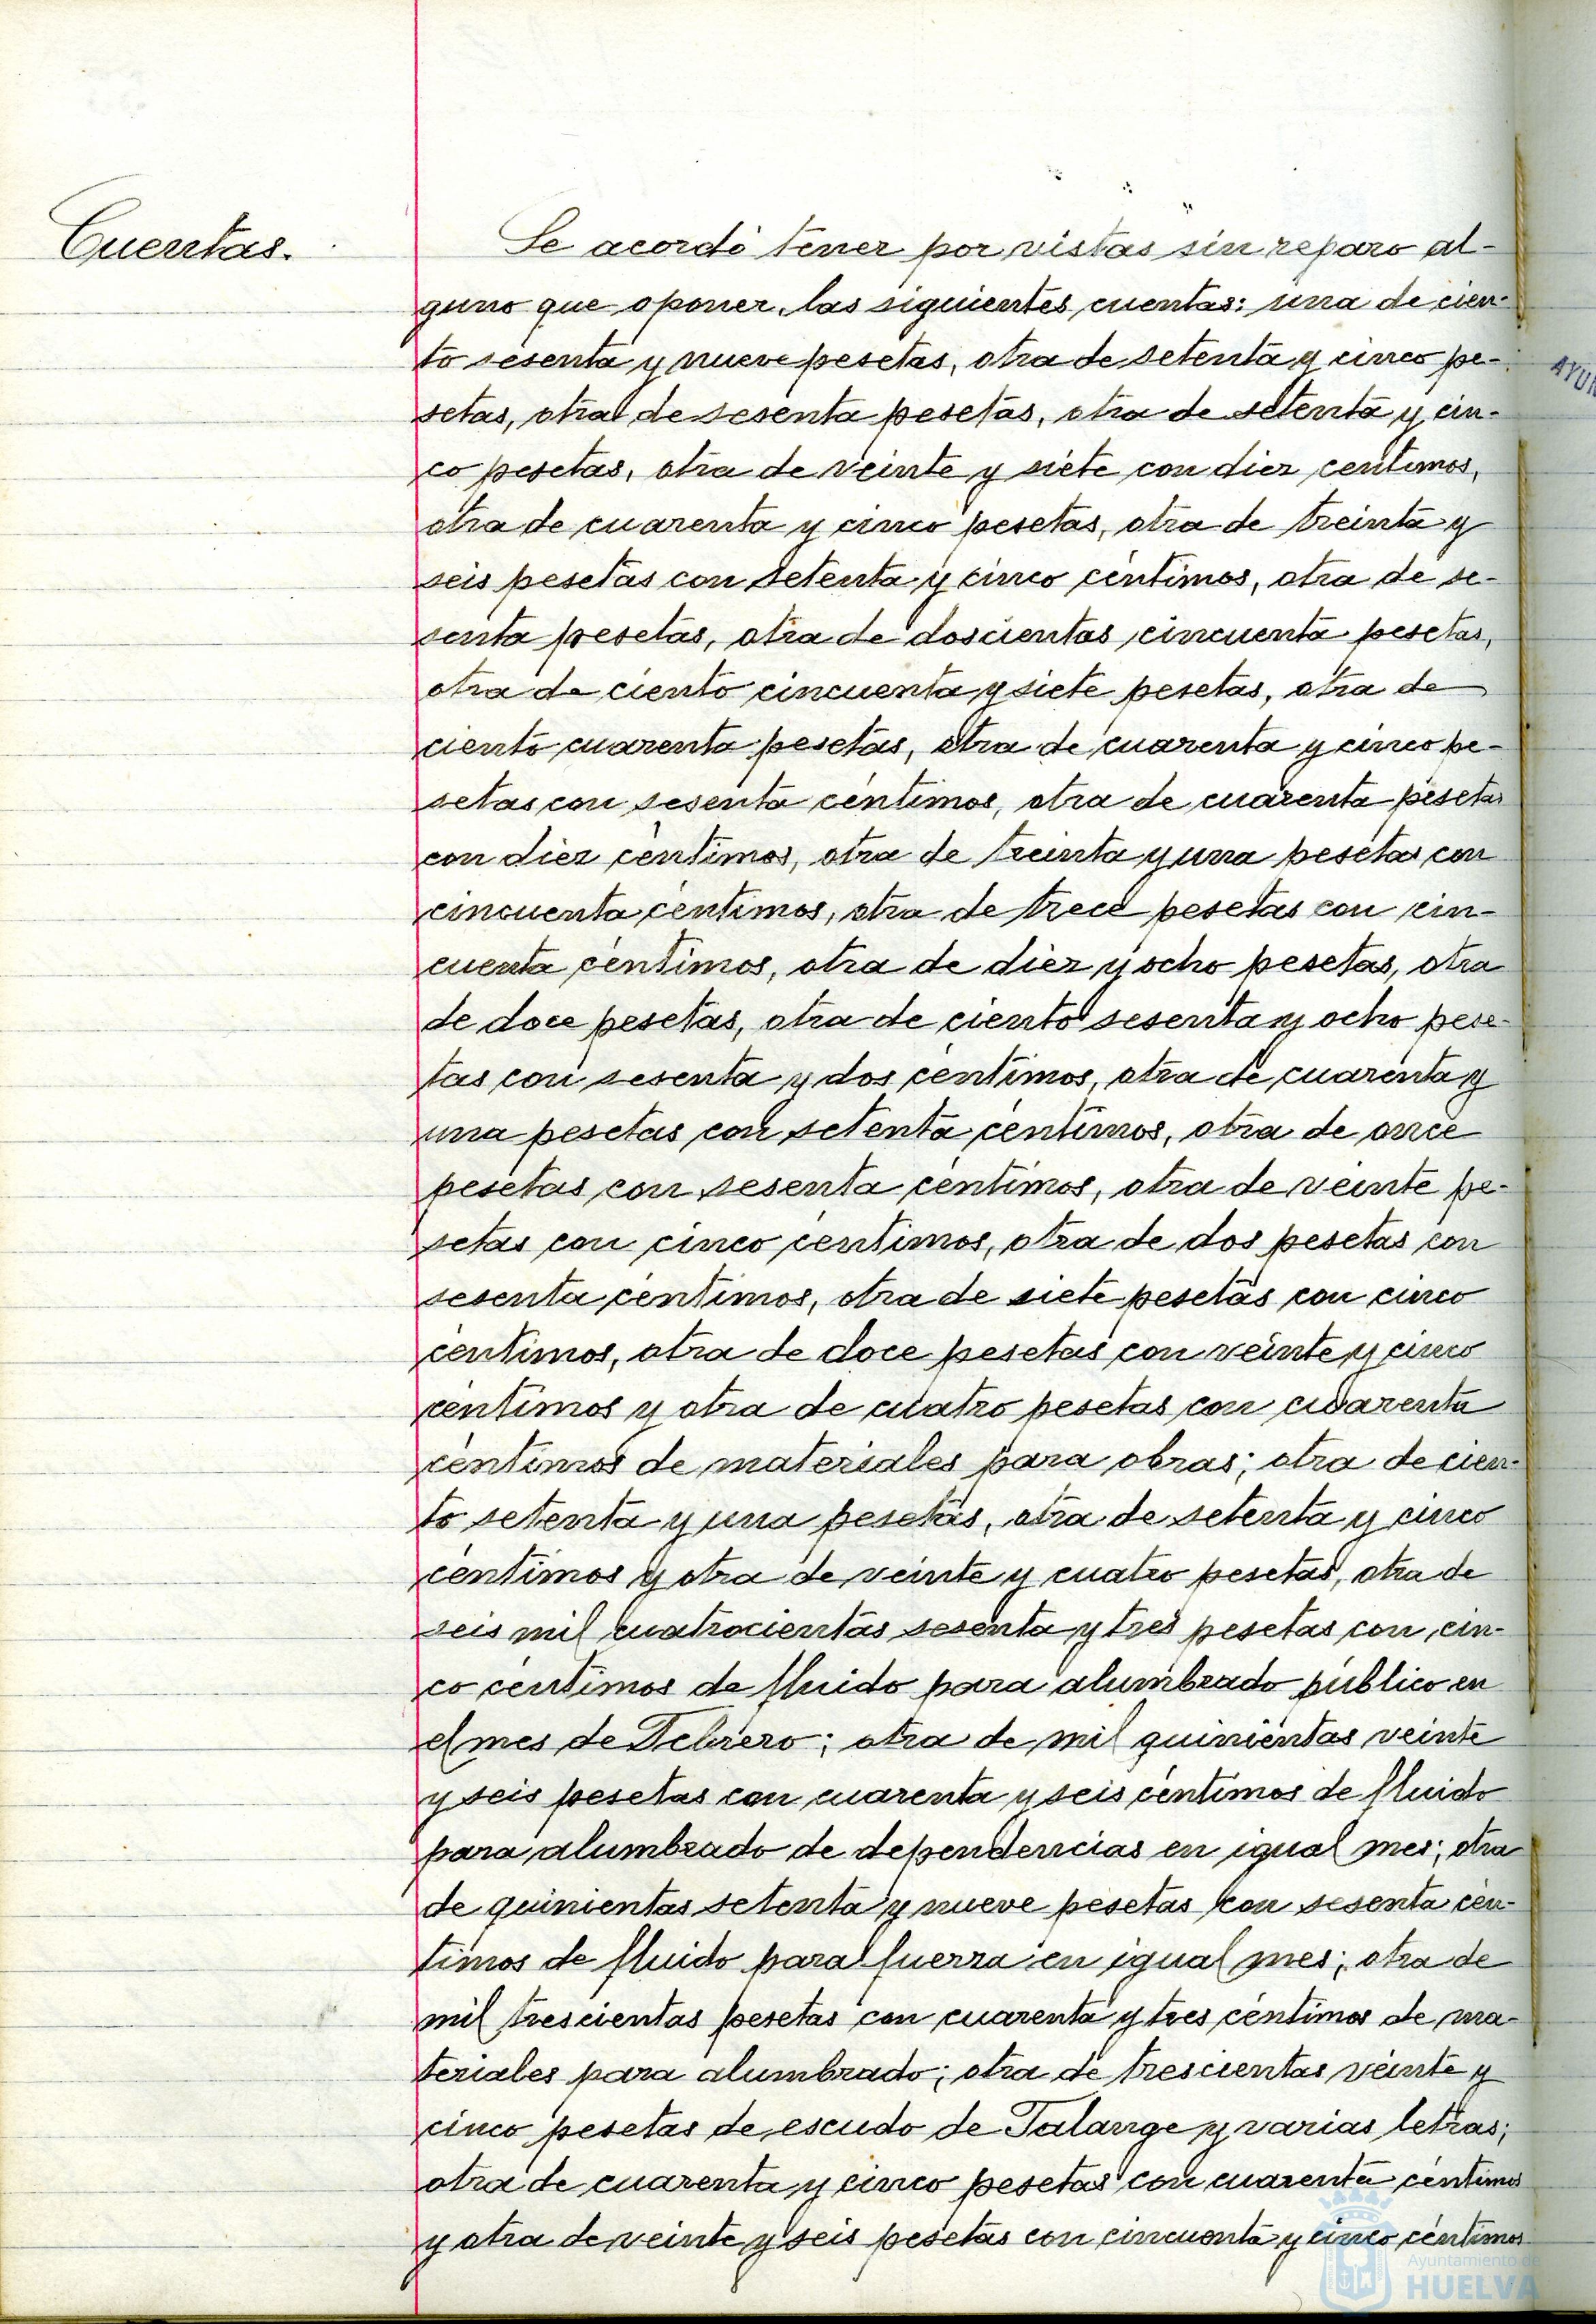 Cuentas.
Se acordó tener por vistas sin reparo al-
guno que oponer, las siguientes cuentas: una de cien-
to sesenta y nueve pesetas, otra de setenta y cinco pe-
setas, otra de sesenta pesetas, otra de setenta y cin-
co pesetas, otra de veinte y siete con diez centimos,
otra de cuarenta y cinco pesetas, otra de treinta y
seis pesetas con setenta y cinco céntimos, otra de se-
senta pesetas, otra de doscientas cincuenta pesetas,
otra de ciento cincuenta y siete pesetas, otra de
ciento cuarenta pesetas, otra de cuarenta y cinco pe-
setas con sesenta céntimos, otra de cuarenta pesetas
con diez céntimos, otra de treinta y una pesetas con
cincuenta céntimos, otra de trece pesetas con cin-
cuenta céntimos, otra de diez y ocho pesetas, otra
de doce pesetas, otra de ciento sesenta y ocho pese-
tas con sesenta y dos céntimos, otra de cuarenta y
una pesetas con setenta céntimos, otra de once
pesetas con sesenta céntimos, otra de veinte pe-
setas con cinco céntimos, otra de dos pesetas con
sesenta céntimos, otra de siete pesetas con cinco
céntimos, otra de doce pesetas con veinte y cinco
céntimos y otra de cuatro pesetas con cuarenta
céntimos de materiales para obras; otra de cien-
to setenta y una pesetas, otra de setenta y cinco
céntimos y otra de veinte y cuatro pesetas, otra de
seis mil cuatrocientas sesenta y tres pesetas con cin-
co céntimos de fluido para alumbrado público en
el mes de Febrero; otra de mil quinientas veinte
y seis pesetas con cuarenta y seis céntimos de fluido
para alumbrado de dependencias en igual mes; otra
de quinientas setenta y nueve pesetas con sesenta cén-
timos de fluido para fuerza en igual mes; otra de
mil trescientas pesetas con cuarenta y tres céntimos de ma-
teriales para alumbrado; otra de trescientas veinte y
cinco pesetas de escudo de Falange y varias letras;
otra de cuarenta y cinco pesetas con cuarenta céntimos
y otra de veinte y seis pesetas con cincuenta y cinco céntimos
Ayuntamiento de
HUELVA